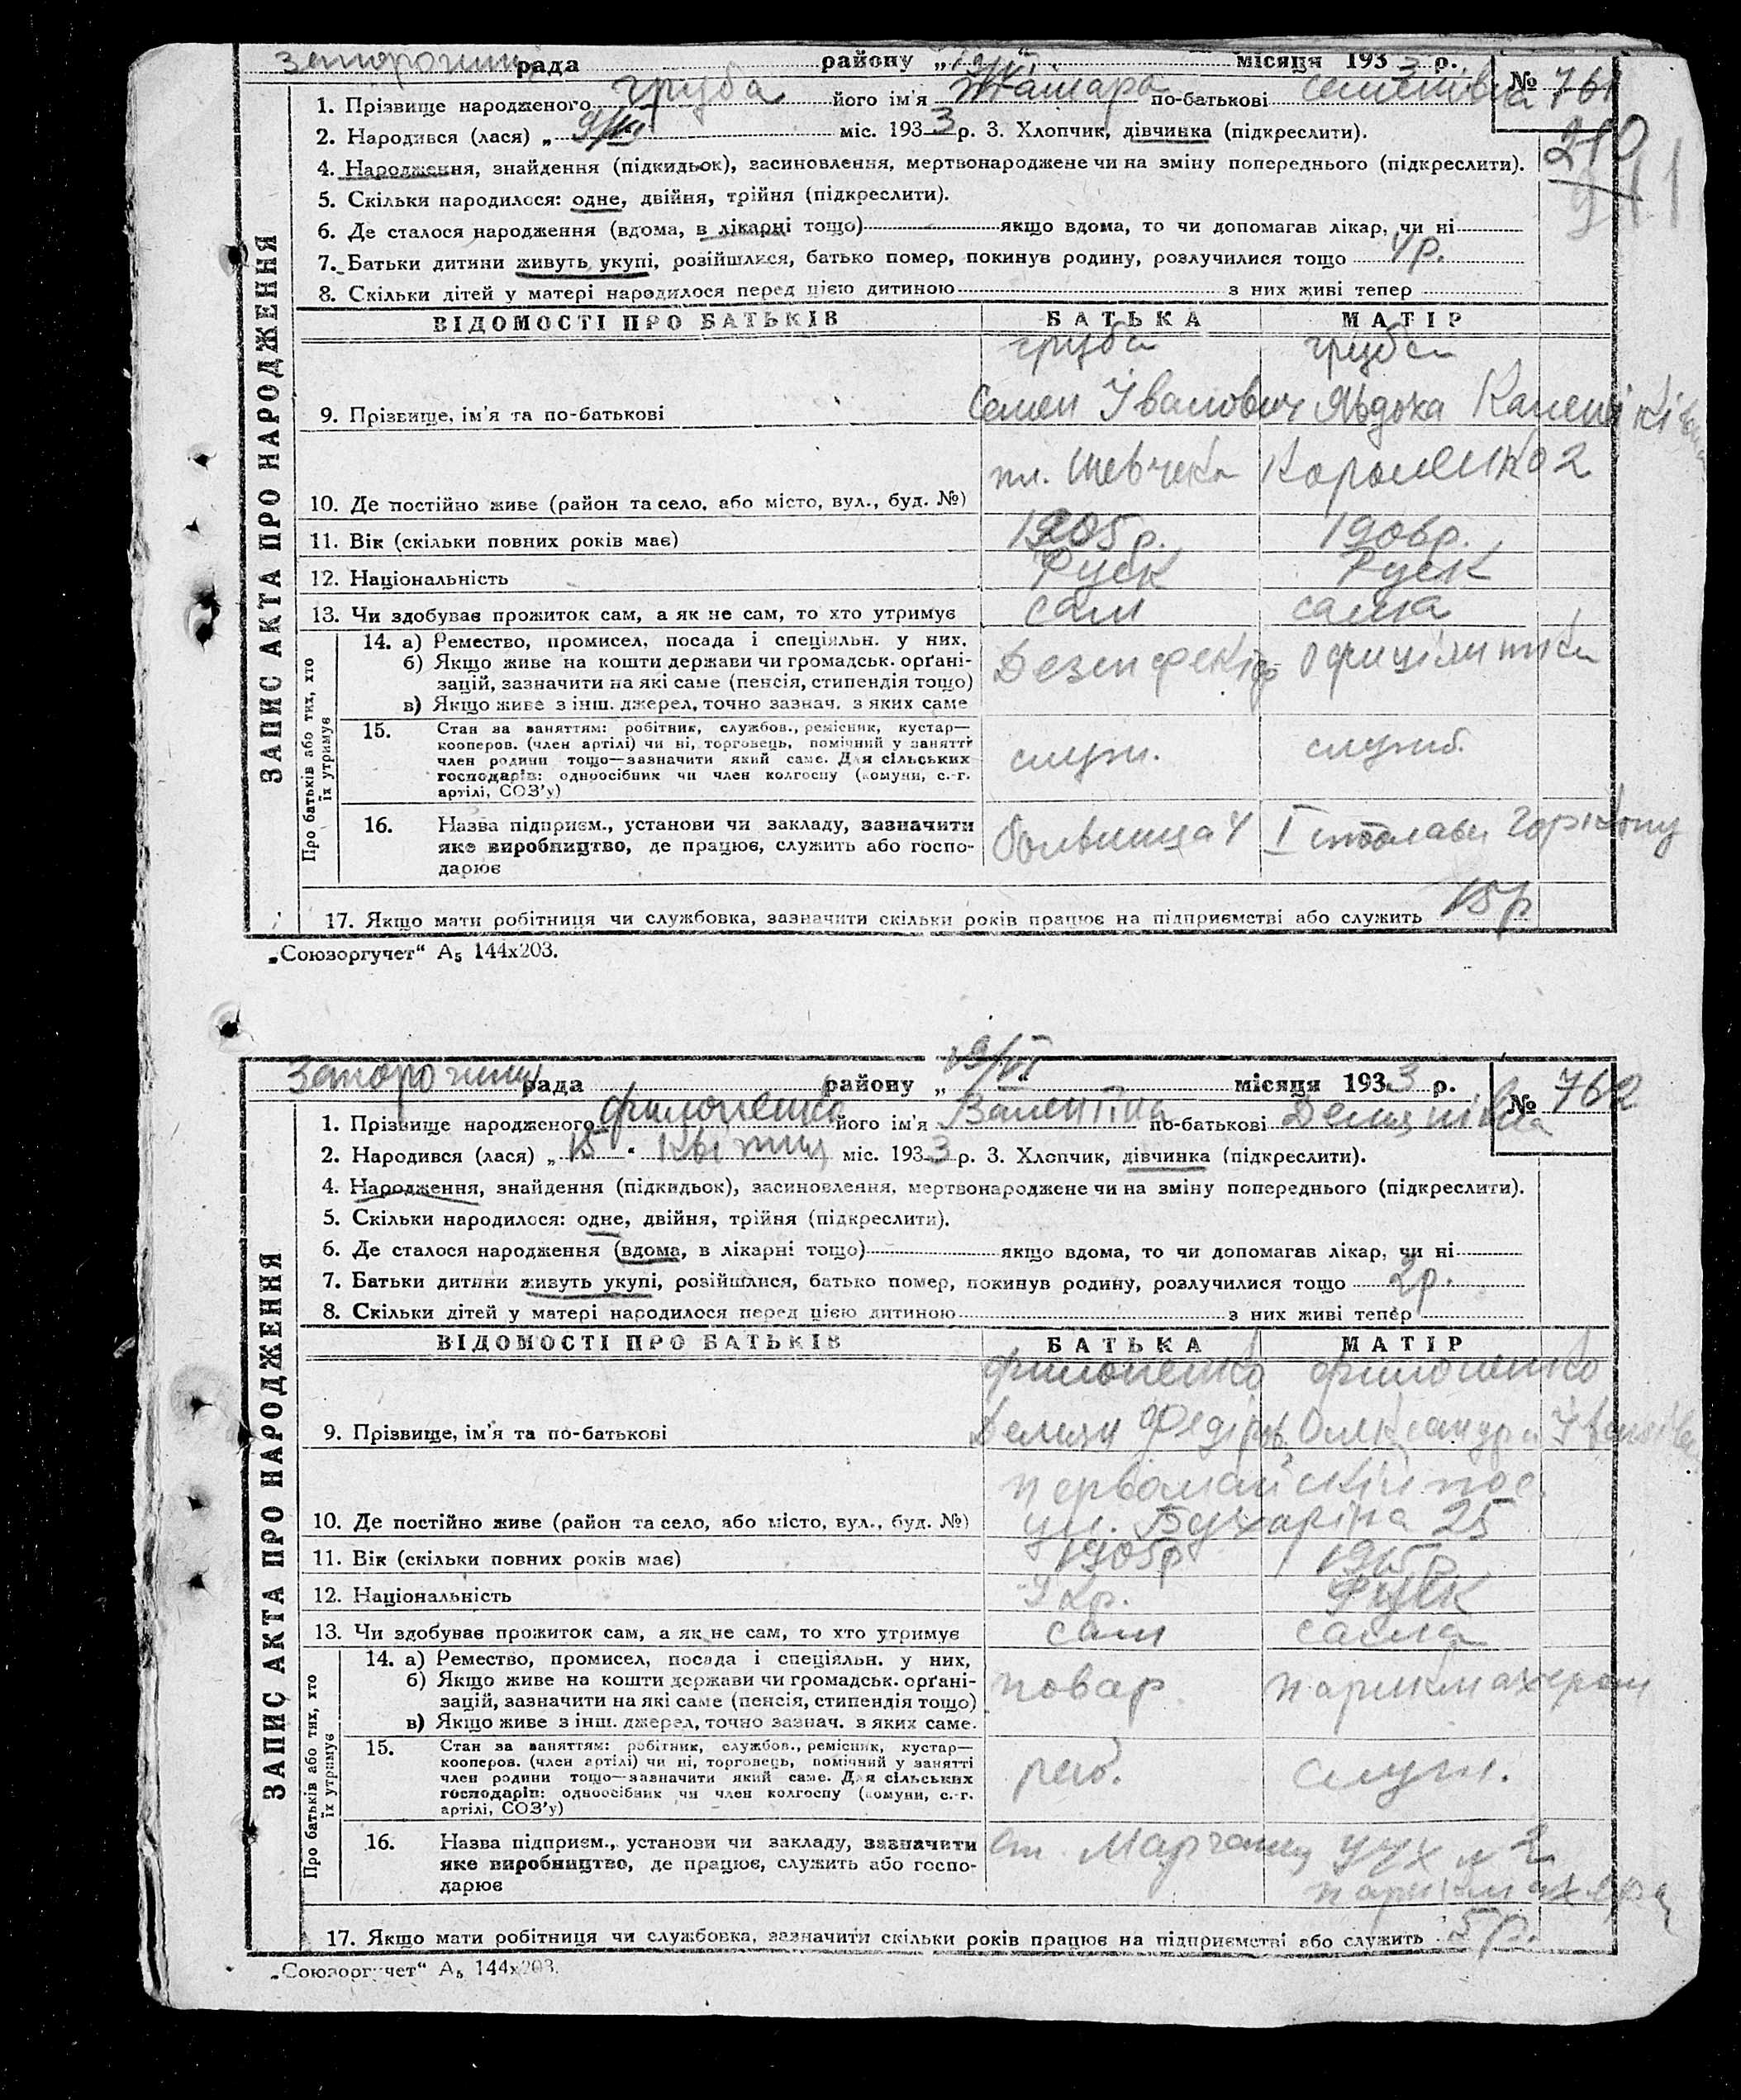 рада району „ місяця 1933 р. № 761
1. Прізвище народженого Груба його ім'я Тамара по-батькові Семенівна
2. Народився (лася) „ міс. 1933 р. 3. Хлопчик, дівчинка (підкреслити).
210
4. Народження, знайдення (підкидьок), засиновлення, мертвонароджене чи на зміну попереднього (підкреслити).
5. Скільки народилося: одне, двійня, трійня (підкреслити).
6. Де сталося народження (вдома, в лікарні тощо) якщо вдома, то чи допомагав лікар, чи ні
7. Батьки дитини живуть укупі, розійшлися, батько помер, покинув родину, розлучилися тощо 4 р.
8. Скільки дітей у матері народилося перед цією дитиною з них живі тепер
ЗАПИС АКТА ПРО НАРОДЖЕННЯ
ВІДОМОСТІ ПРО БАТЬКІВ БАТЬКА МАТІР
Груба Груба
9. Прізвище, ім'я та по-батькові Семен Іванович Явдоха
пл. Шевчека Короленко 2
10. Де постійно живе (район та село, або місто, вул., буд. №)
11. Вік (скільки повних років має) 1905 р. 1906 р.
12. Національність Руск Руск
13. Чи здобуває прожиток сам, а як не сам, то хто утримує сам сама
Про батьків або тих, хто їх утримує
14. а) Ремество, промисел, посада і спеціяльн. у них.
б) Якщо живе на кошти держави чи громадськ. орґані-
зацій, зазначити на які саме (пенсія, стипендія тощо)
в) Якщо живе з інш. джерел, точно зазнач. з яких саме
15. Стан за заняттям: робітник, службов., ремісник, кустар—
кооперов. (член артілі) чи ні, торговець, помічний у занятті
член родини тощо—зазначити який саме. Для сільських
господарів: одноосібник чи член колгоспу (комуни, с.-г.
артілі, СОЗ'у)
служ. служб.
16. Назва підприєм., установи чи закладу, зазначити
яке виробництво, де працює, служить або госпо-
дарює
17. Якщо мати робітниця чи службовка, зазначити скільки років працює на підприємстві або служить 15 р
„Союзоргучет“ А5 144х203.
рада району „ місяця 1933 р. № 762
1. Прізвище народженого Филоненко його ім'я Валентіна по-батькові Демянівна
2. Народився (лася) „ 15 “ квітня міс. 1933 р. 3. Хлопчик, дівчинка (підкреслити).
4. Народження, знайдення (підкидьок), засиновлення, мертвонароджене чи на зміну попереднього (підкреслити).
5. Скільки народилося: одне, двійня, трійня (підкреслити).
6. Де сталося народження (вдома, в лікарні тощо) якщо вдома, то чи допомагав лікар, чи ні
7. Батьки дитини живуть укупі, розійшлися, батько помер, покинув родину, розлучилися тощо 2 р.
8. Скільки дітей у матері народилося перед цією дитиною з них живі тепер
ЗАПИС АКТА ПРО НАРОДЖЕННЯ
ВІДОМОСТІ ПРО БАТЬКІВ БАТЬКА МАТІР
Филоненко Филоненко
9. Прізвище, ім'я та по-батькові Демян Федіров Олександра
Первомайский пос.
10. Де постійно живе (район та село, або місто, вул., буд. №) ул. Бухаріна 25
11. Вік (скільки повних років має) 1905 р 1915 р
12. Національність Укр. Руск
13. Чи здобуває прожиток сам, а як не сам, то хто утримує сам сама
Про батьків або тих, хто їх утримує
14. а) Ремество, промисел, посада і спеціяльн. у них,
б) Якщо живе на кошти держави чи громадськ. орґані-
зацій, зазначити на які саме (пенсія, стипендія тощо)
в) Якщо живе з інш. джерел, точно зазнач. з яких саме.
повар
15. Стан за заняттям: робітник, службов., ремісник, кустар—
кооперов. (член артілі) чи ні, торговець, помічний у занятті
член родини тощо—зазначити який саме. Для сільських
господарів: одноосібник чи член колгоспу (комуни, с.-г.
артілі, СОЗ'у)
роб. служ.
16. Назва підприєм., установи чи закладу, зазначити
яке виробництво, де працює, служить або госпо-
дарює
ст. Марганец
17. Якщо мати робітниця чи службовка, зазначити скільки років працює на підприємстві або служить 5 р.
„Союзоргучет“ А5 144х203.